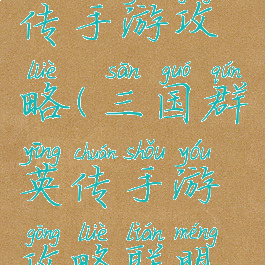 传手游攻
lüè sān guó qún
略(三国群
yīng chuán shǒu yóu
英传手游
gōng lüè lián méng
攻略联盟